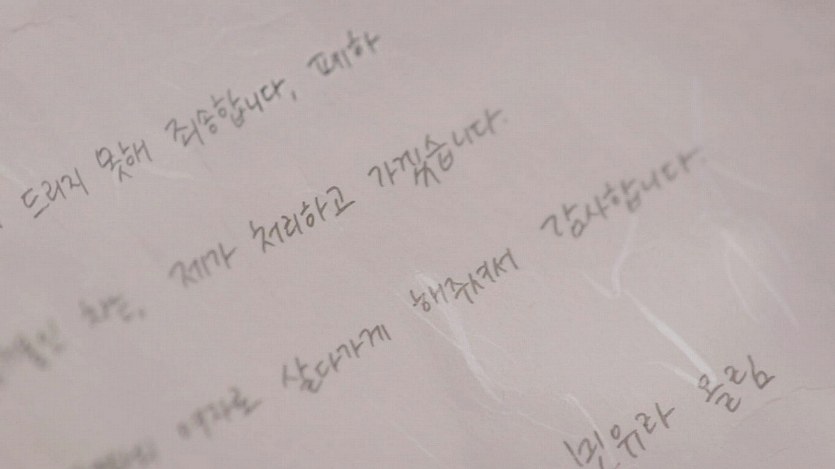 드리지 못해 죄송합니다, 폐하
저가 처리하고 가겠습니다.
여자로 살다가게 해주셔서 감사합니다.
민유라 올림